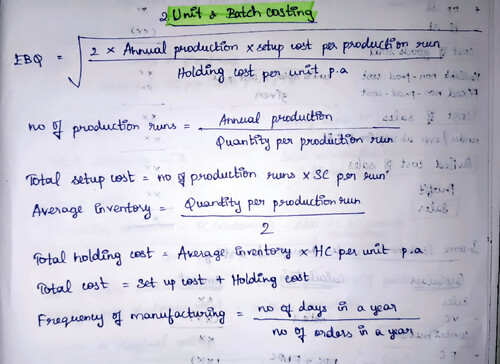 2. Unit & Batch costing
EBQ = √ 2 × Annual production × setup cost per production run
Holding cost per unit p.a
no of production runs = Annual production
Quantity per production run
Total setup cost = no of production runs × SC per run
Average inventory = Quantity per production run
2
Total holding cost = Average inventory × HC per unit p.a
Total cost = Set up cost + Holding cost
Frequency of manufacturing = no of days in a year
no of orders in a year